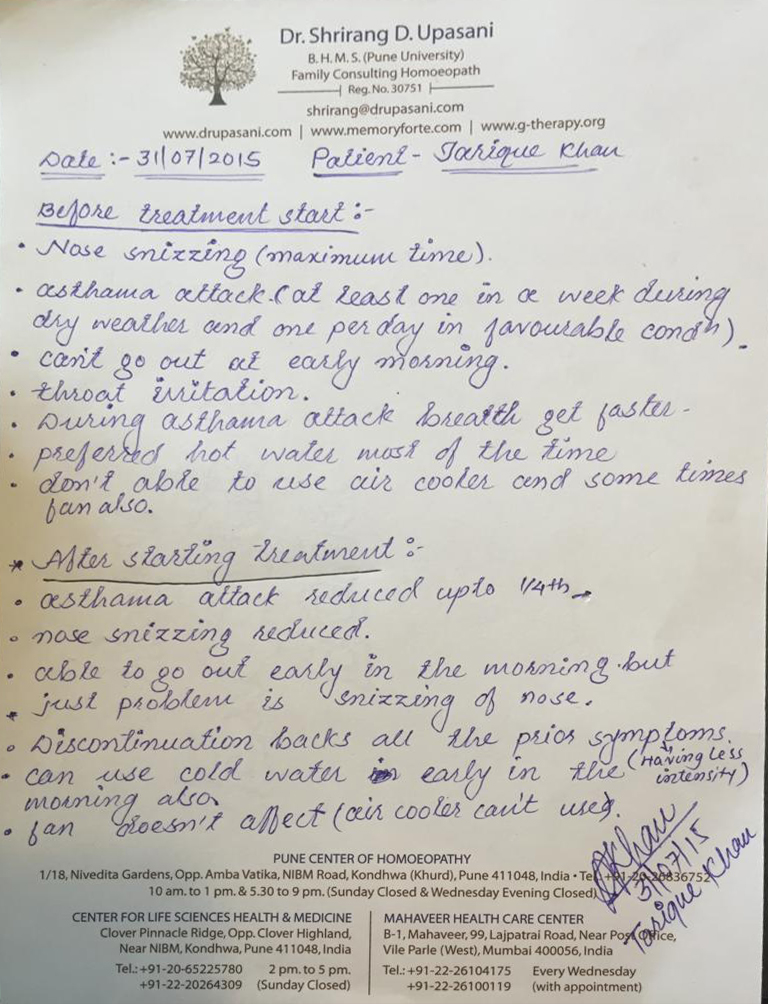 Dr. Shrirang D. Upasani
B. H. M. S. (Pune University)
Family Consulting Homoeopath
Reg. No. 30751
shrirang@drupasani.com
www.drupasani.com | www.memoryforte.com | www.g-therapy.org
Date :- 31/07/2015 Patient - Tarique Khan
Before treatment start :-
• Nose snizzing (maximum time).
• asthama attack. (at least one in a week during
dry weather and one per day in favourable condn).
• can't go out at early morning.
• throat irritation.
• During asthama attack breath get faster -
• preferred hot water most of the time
• don't able to use air cooler and some times
fan also.
* After starting treatment :-
• asthama attack reduced upto 1/4th
• nose snizzing reduced.
• able to go out early in the morning. but
* just problem is snizzing of nose.
• Discontinuation backs all the prior symptoms.
(Having less
intensity)
• can use cold water early in the
morning also
• fan doesn't affect (air cooler can't use).
AKhan
31/07/15
Tarique Khan
PUNE CENTER OF HOMOEOPATHY
1/18, Nivedita Gardens, Opp. Amba Vatika, NIBM Road, Kondhwa (Khurd), Pune 411048, India • Tel.: +91-20-26836752
10 am. to 1 pm. & 5.30 to 9 pm. (Sunday Closed & Wednesday Evening Closed)
CENTER FOR LIFE SCIENCES HEALTH & MEDICINE
Clover Pinnacle Ridge, Opp. Clover Highland,
Near NIBM, Kondhwa, Pune 411048, India
Tel.: +91-20-65225780 2 pm. to 5 pm.
+91-22-20264309 (Sunday Closed)
MAHAVEER HEALTH CARE CENTER
B-1, Mahaveer, 99, Lajpatrai Road, Near Post Office,
Vile Parle (West), Mumbai 400056, India
Tel.: +91-22-26104175 Every Wednesday
+91-22-26100119 (with appointment)